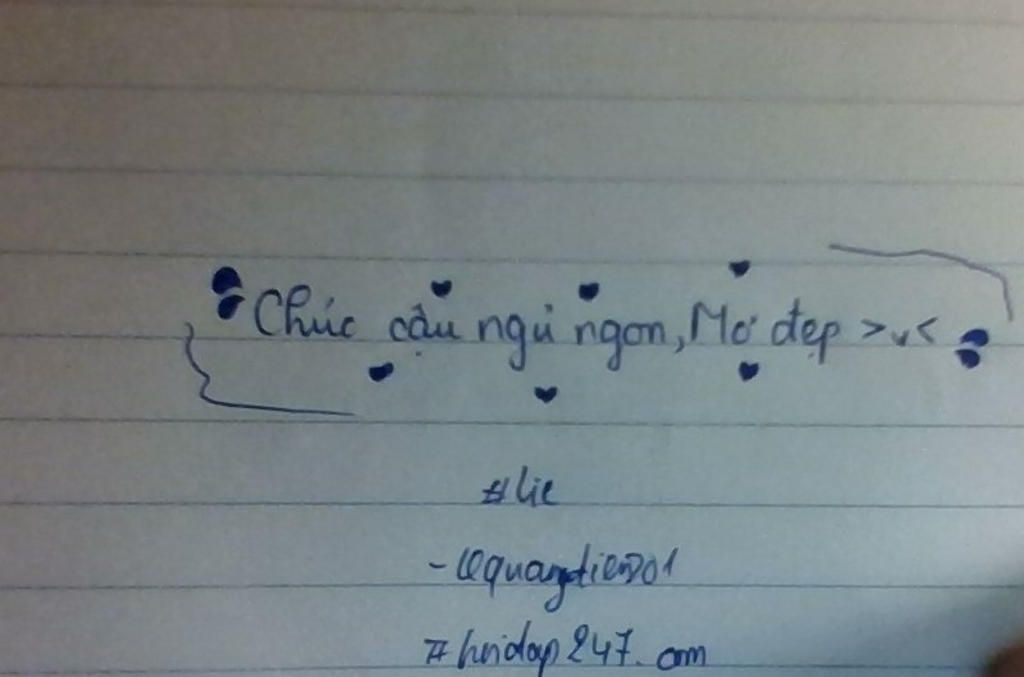 Chúc cậu ngủ ngon, Mơ đẹp >v<
#lie
#hoidap247.com